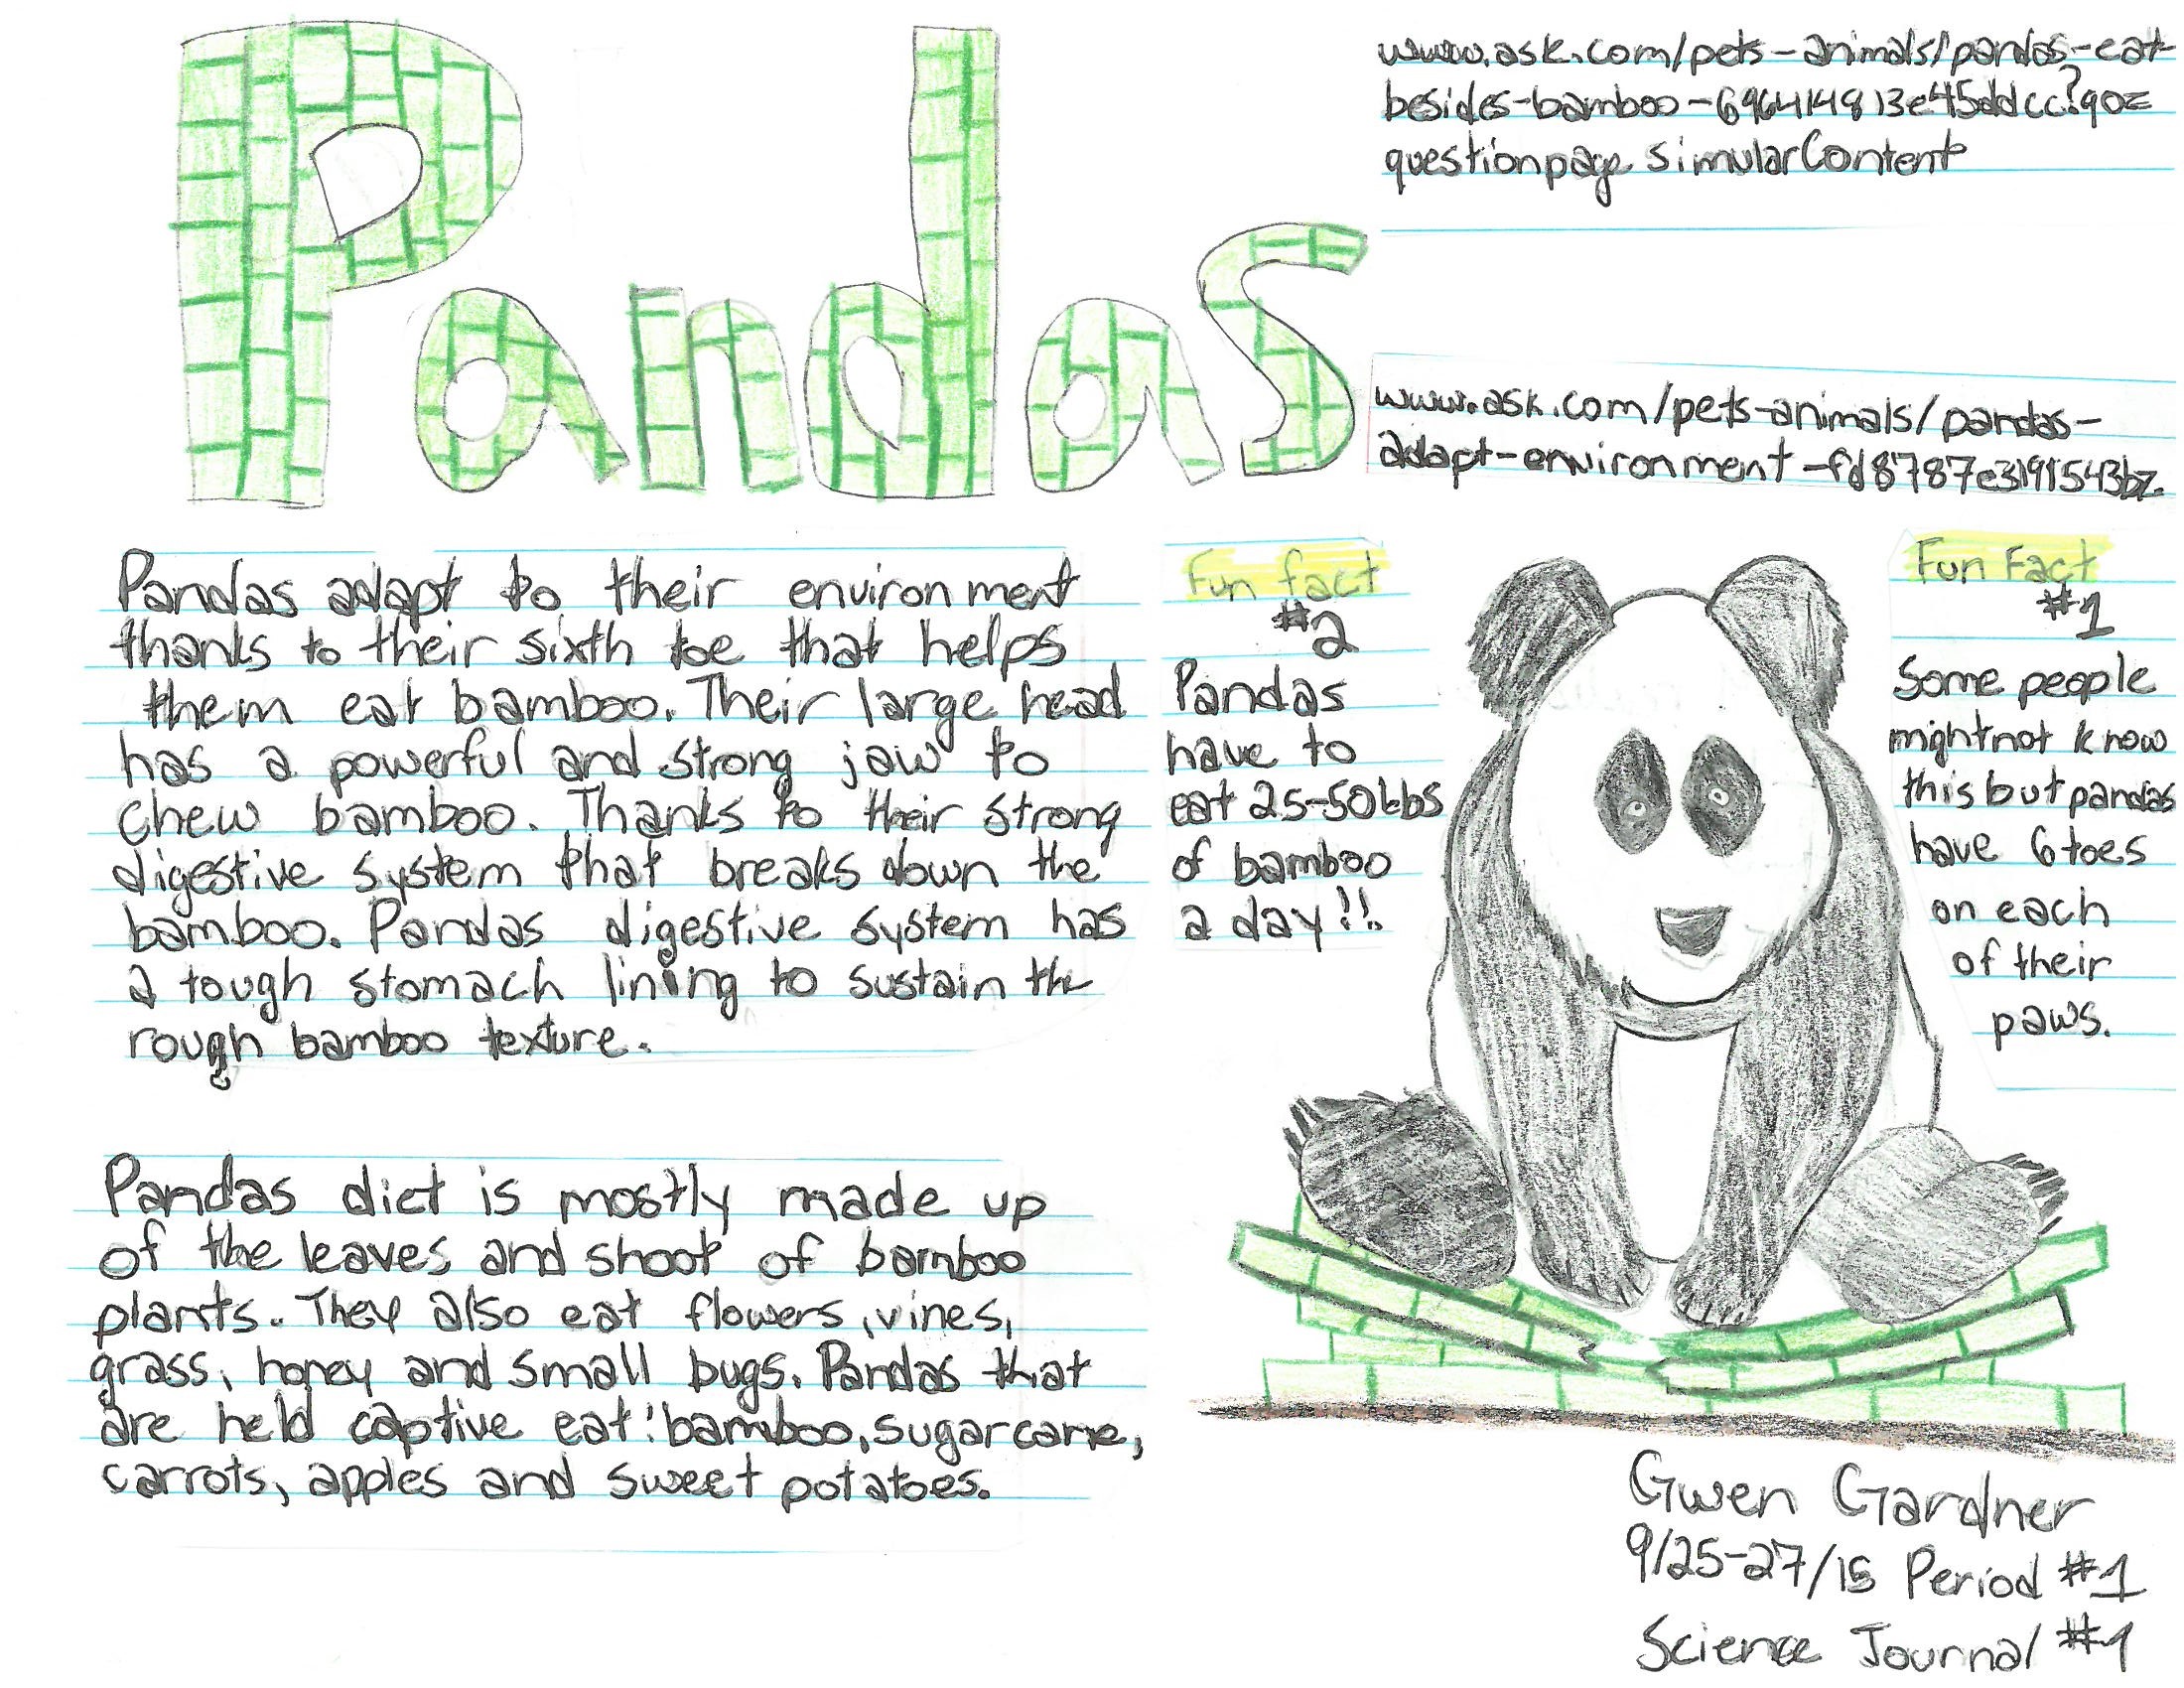 Pandas
www.ask.com/pets-animals/pandas-eat-
besides-bamboo-696414813e45ddcc?qo=
questionpage similarContent
www.ask.com/pets-animals/pandas-
adapt-environment-fd8787e3191543bz.
Pandas adapt to their environment
thanks to their sixth toe that helps
them eat bamboo. Their large head
has a powerful and strong jaw to
chew bamboo. Thanks to their strong
digestive system that breaks down the
bamboo. Pandas digestive system has
a tough stomach lining to sustain the
rough bamboo texture.
Pandas diet is mostly made up
of the leaves and shoot of bamboo
plants. They also eat flowers, vines,
grass, honey and small bugs. Pandas that
are held captive eat: bamboo, sugarcane,
carrots, apples and sweet potatoes.
Fun fact
#2
Pandas
have to
eat 25-50 lbs
of bamboo
a day!!
Fun Fact
#1
Some people
might not know
this but pandas
have 6 toes
on each
of their
paws.
Gwen Gardner
9/25-27/15 Period #1
Science Journal #1